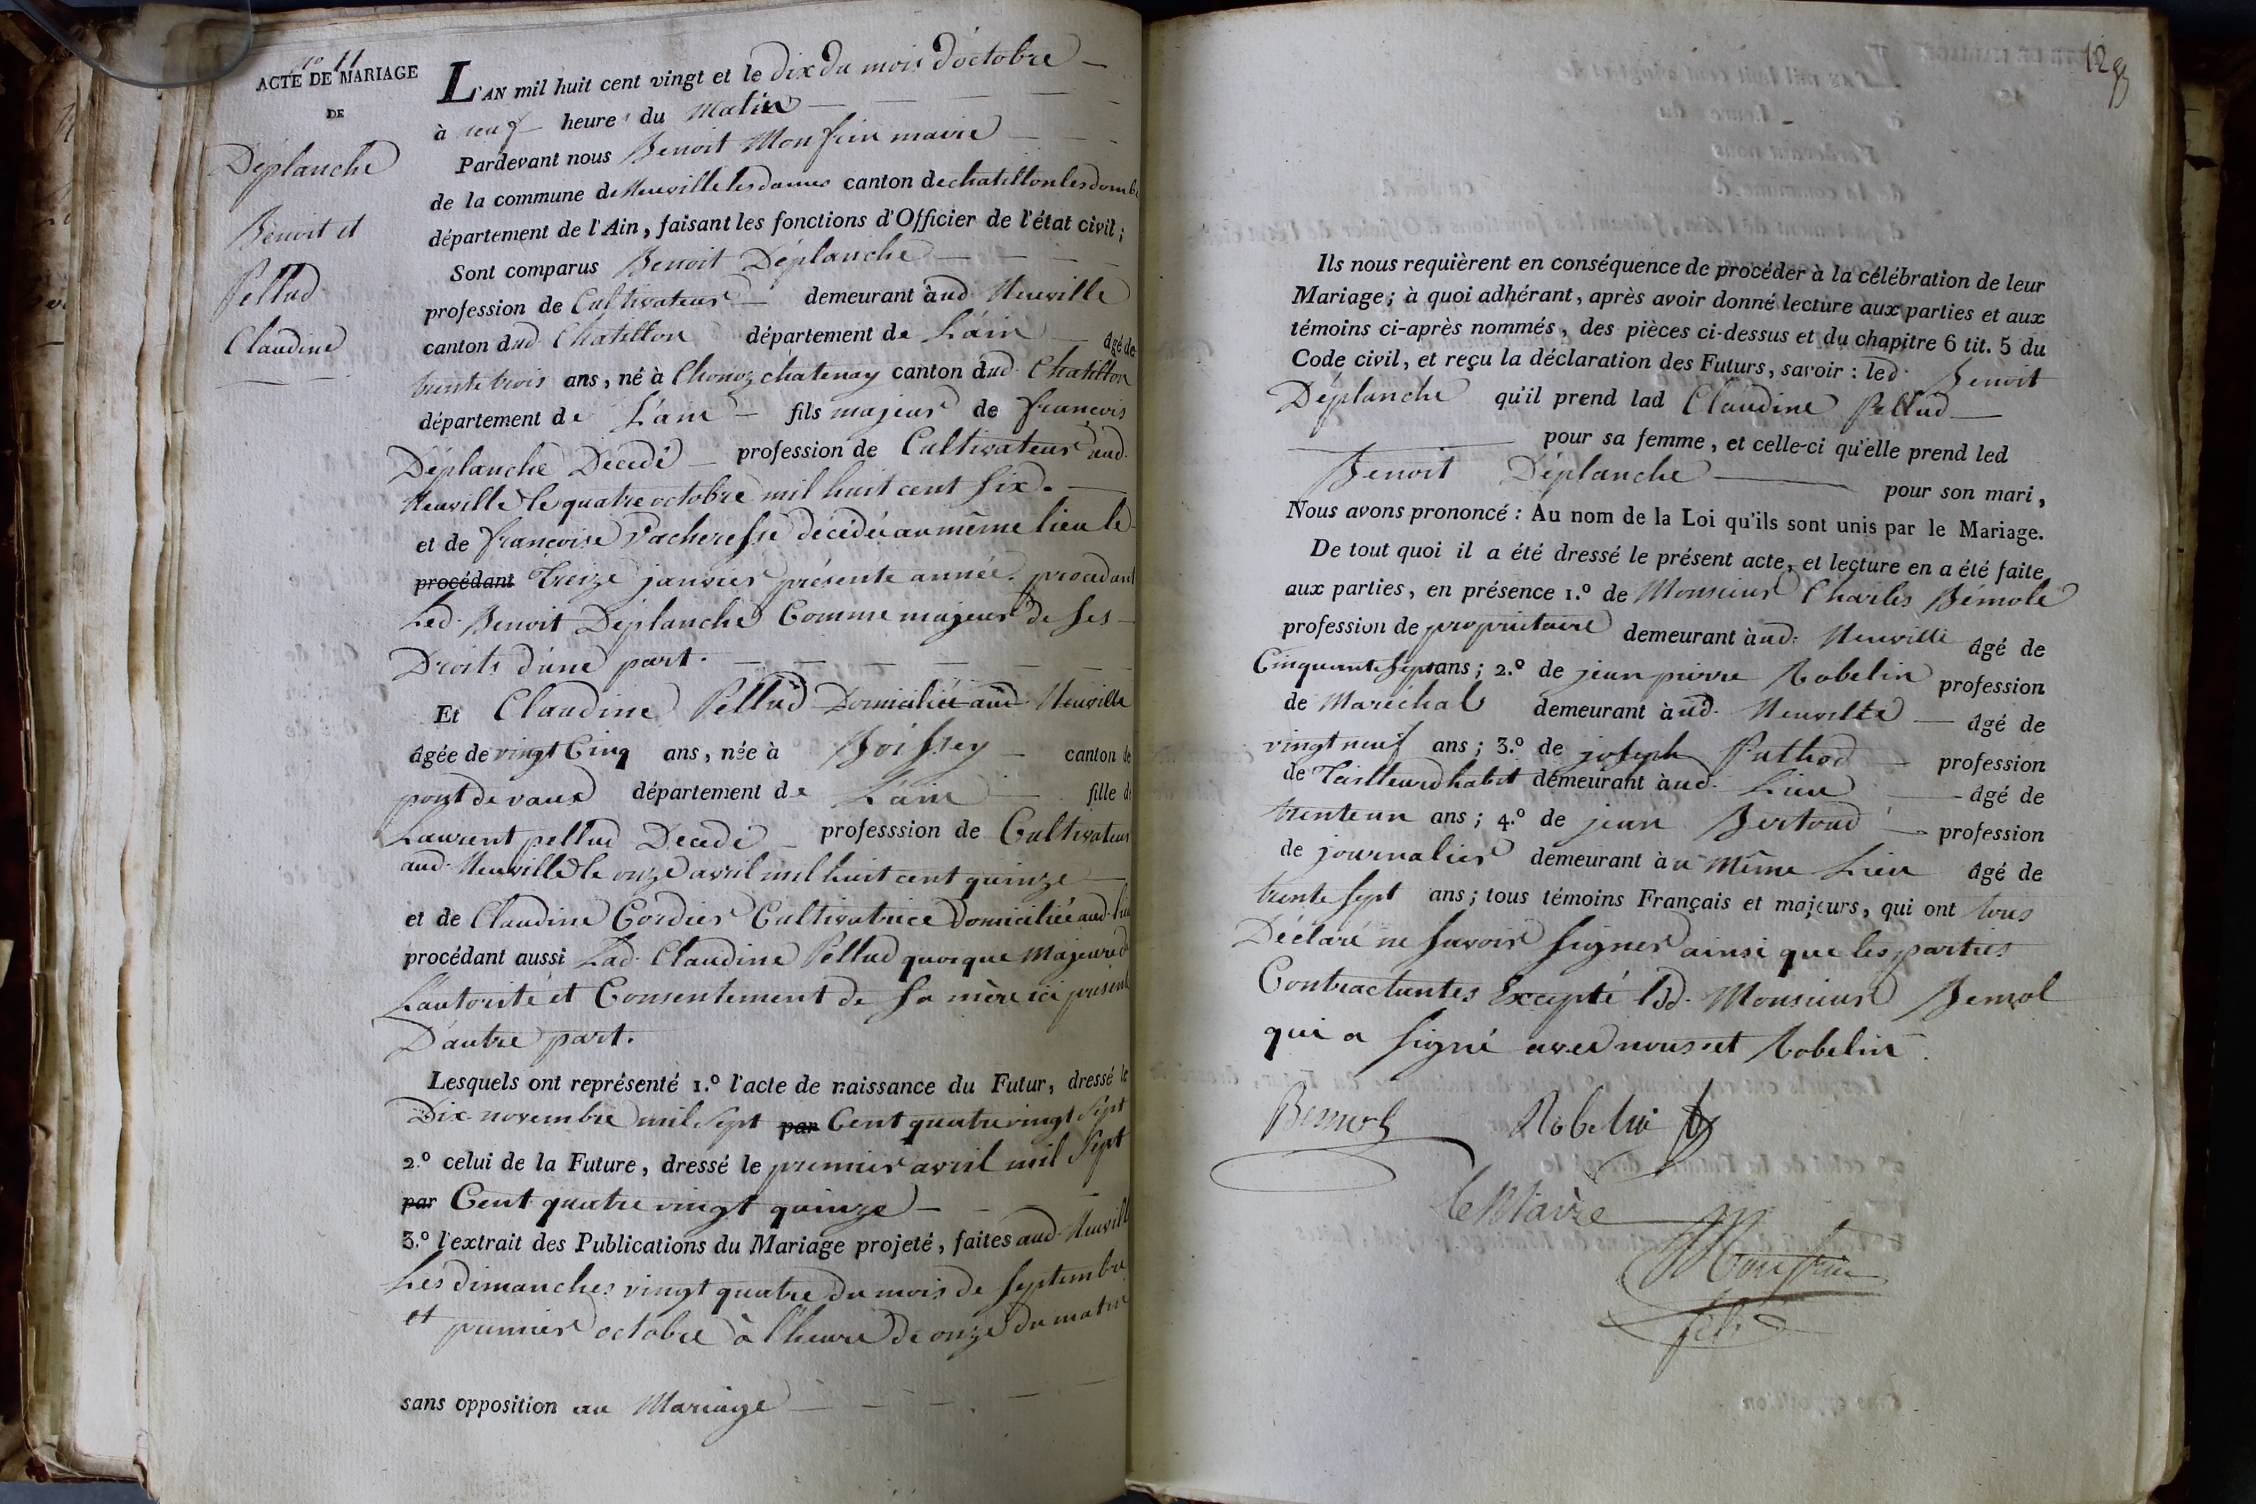 n° 11
ACTE DE MARIAGE
DE
Déplanche
Benoit et
Pellud
Claudine
L'AN mil huit cent vingt et le dix du mois d'octobre
à neuf heures du Matin
Pardevant nous Benoit Monfrin maire
de la commune de Neuville les dames canton de chatillon les domb
département de l'Ain, faisant les fonctions d'Officier de l'état civil;
Sont comparus Benoit Déplanche
profession de Cultivateur demeurant àud. Neuville
canton dud. Chatillon département de L'ain âgé de
trente trois ans, né à Chonoz chatenay canton dud. Chatillon
département de L'ain fils majeur de françois
Déplanche Décédé profession de Cultivateur aud.
Neuville le quatre octobre mil huit cent six.
et de françoise Vacheresse décédée au même lieu le
procédant Treize janvier présente année. procedant
Led. Benoit Déplanche Comme majeur de ses
Droits d'une part.
Et Claudine Pellud Domiciliée aud Neuville
âgée de vingt Cinq ans, née à Boissey canton de
pont de vaux département de L'ain fille de
Laurent pellud Decedé professsion de Cultivateur
aud. Neuville le onze avril mil huit cent quinze
et de Claudine Cordier Cultivatrice Domiciliée aud. lieu
procédant aussi Lad. Claudine Pellud quoique Majeure de
L'autorité et Consentement de sa mère ici présente
D'autre part.
Lesquels ont représenté 1.º l'acte de naissance du Futur, dressé le
Dix novembre mil sept par Cent quatre vingt sept
2.º celui de la Future, dressé le premier avril mil sept
par Cent quatre vingt quinze
3.º l'extrait des Publications du Mariage projeté, faites aud. Neuville
Les dimanches vingt quatre du mois de septembre
et premier octobre à l'heure de onze du matin
sans opposition au Mariage
12
Ils nous requièrent en conséquence de procéder à la célébration de leur
Mariage; à quoi adhérant, après avoir donné lecture aux parties et aux
témoins ci-après nommés, des pièces ci-dessus et du chapitre 6 tit. 5 du
Code civil, et reçu la déclaration des Futurs, savoir : led. Benoit
Déplanche qu'il prend lad Claudine Pellud
pour sa femme, et celle-ci qu'elle prend led
Benoit Déplanche pour son mari,
Nous avons prononcé : Au nom de la Loi qu'ils sont unis par le Mariage.
De tout quoi il a été dressé le présent acte, et lecture en a été faite
aux parties, en présence 1.º de Monsieur Charles Bémole
profession de propriétaire demeurant àud. Neuville âgé de
Cinquante Sept ans; 2.º de jean pierre Robelin profession
de Maréchal demeurant àud. Neuville âgé de
vingt neuf ans; 3.º de joseph Puthod profession
de Tailleur d'habit demeurant àud. Lieu âgé de
trente un ans; 4.º de jean Bertoud profession
de journalier demeurant àu même Lieu âgé de
trente sept ans; tous témoins Français et majeurs, qui ont tous
Déclaré ne savoir signer ainsi que les parties
Contractantes Excepté led. Monsieur Bemol
qui a signé avec nous et Robelin.
Bemol Robelin
le Maire
Monfrin